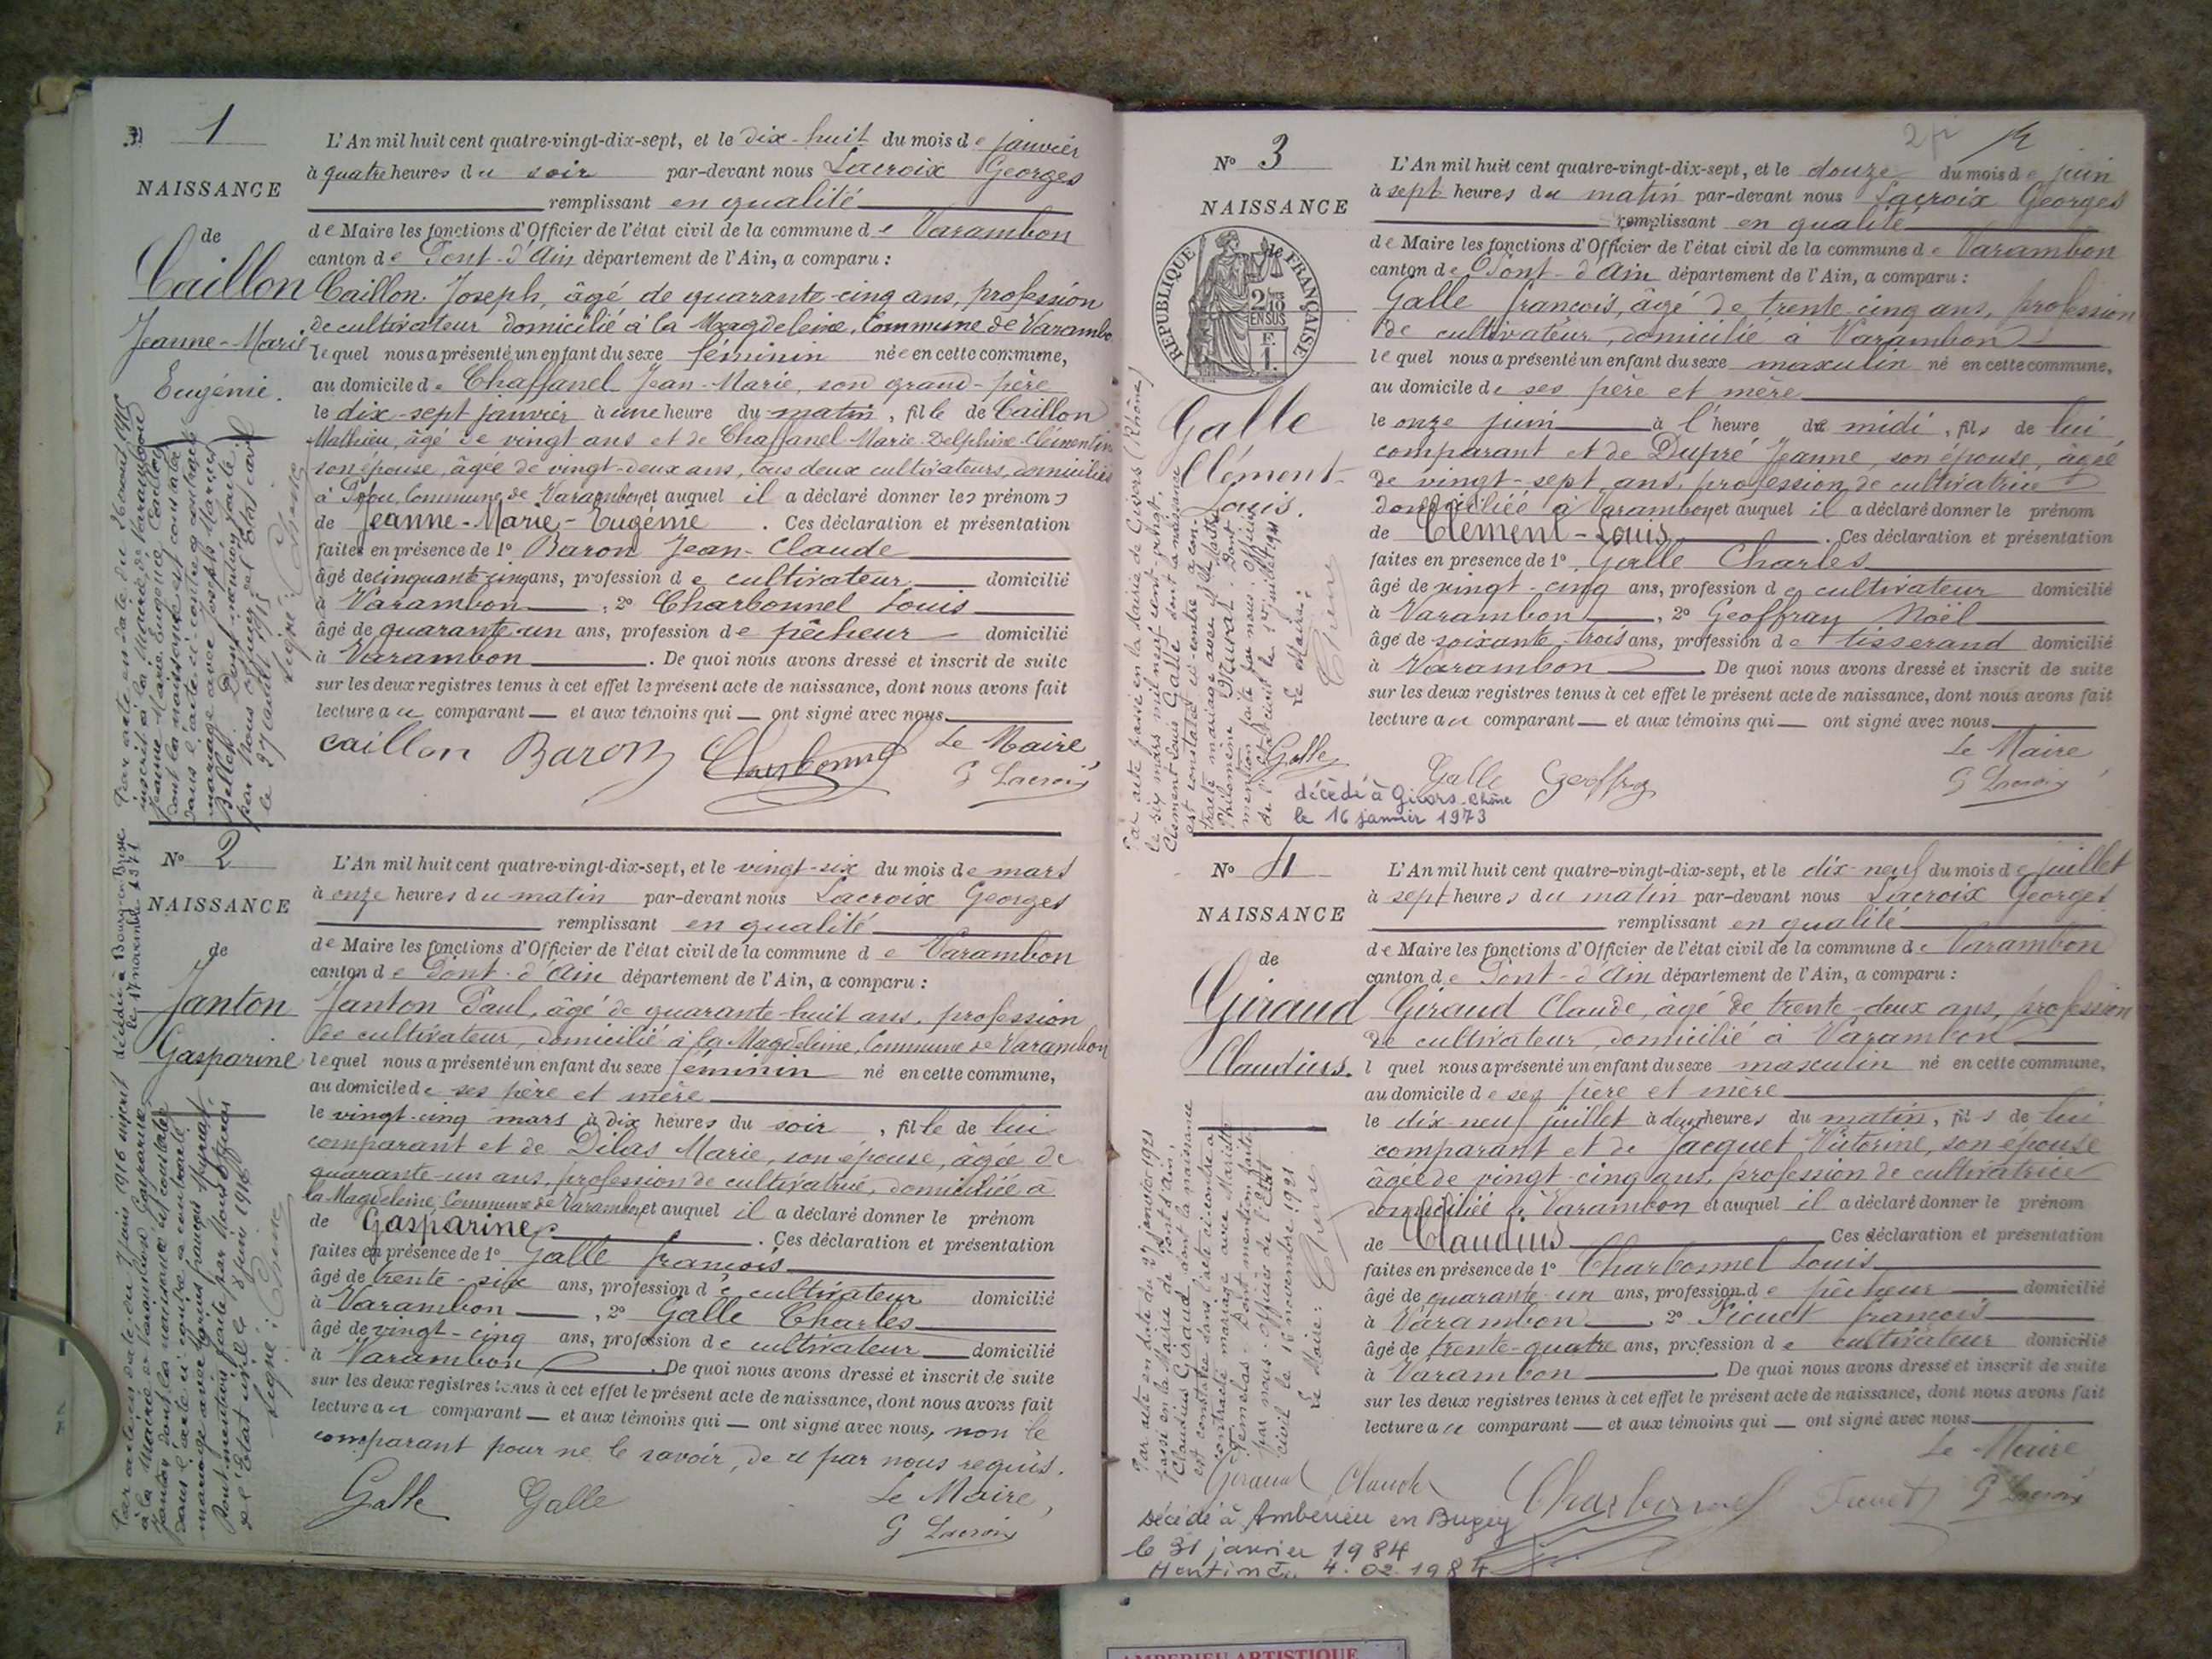 1
NAISSANCE
de
Caillon
Jeanne-Marie
Eugénie.
L'An mil huit cent quatre-vingt-dix-sept, et le dix-huit du mois de janvier
à quatre heures du soir par-devant nous Lacroix Georges
remplissant en qualité
de Maire les fonctions d'Officier de l'état civil de la commune de Varambon
canton de Pont-d'Ain département de l'Ain, a comparu :
Caillon Joseph, âgé de quarante-cinq ans, profession
de cultivateur domicilié à la Magdeleine, Commune de Varambon
lequel nous a présenté un enfant du sexe féminin née en cette commune,
au domicile de Chaffanel Jean-Marie, son grand-père
le dix-sept janvier à une heure du matin, fille de Caillon
Mathieu, âgé de vingt ans et de Chaffanel Marie-Delphine-Clémentine
son épouse, âgée de vingt-deux ans, tous deux cultivateurs, domiciliés
à Commune de Varambon et auquel il a déclaré donner les prénoms
de Jeanne-Marie-Eugénie . Ces déclaration et présentation
faites en présence de 1° Baron Jean-Claude
âgé de cinquante-cinq ans, profession de cultivateur domicilié
à Varambon , 2° Charbonnel Louis
âgé de quarante-un ans, profession de pêcheur domicilié
à Varambon . De quoi nous avons dressé et inscrit de suite
sur les deux registres tenus à cet effet le présent acte de naissance, dont nous avons fait
lecture au comparant — et aux témoins qui — ont signé avec nous.
Le Maire
caillon Baron Charbonnel
G Lacroix
Par acte en date du 26 août 1915
inscrit à la Mairie de Varambon
Jeanne Marie Eugénie Caillon
dont la naissance est constatée
dans l'acte ci-contre a contracté
mariage avec Joseph Marius
Belloz. Dont mention faite
par Nous Officier de l'Etat civil
le 27 août 1915
Signé :
décédée à Bourg-en-Bresse
le 17 novembre 1971
N° 2
NAISSANCE
de
Janton
Gasparine
L'An mil huit cent quatre-vingt-dix-sept, et le vingt-six du mois de mars
à onze heures du matin par-devant nous Lacroix Georges
remplissant en qualité
de Maire les fonctions d'Officier de l'état civil de la commune de Varambon
canton de Pont-d'Ain département de l'Ain, a comparu :
Janton Paul, âgé de quarante-huit ans, profession
de cultivateur, domicilié à la Magdeleine, Commune de Varambon
lequel nous a présenté un enfant du sexe féminin né en cette commune,
au domicile de ses père et mère
le vingt-cinq mars à dix heures du soir , fille de lui
comparant et de Dilas Marie, son épouse, âgée de
quarante-un ans, profession de cultivatrice, domiciliée à
la Magdeleine, Commune de Varambon et auquel il a déclaré donner le prénom
de Gasparine . Ces déclaration et présentation
faites en présence de 1° Galle françois
âgé de trente-six ans, profession de cultivateur domicilié
à Varambon , 2° Galle Charles
âgé de vingt-cinq ans, profession de cultivateur domicilié
à Varambon . De quoi nous avons dressé et inscrit de suite
sur les deux registres tenus à cet effet le présent acte de naissance, dont nous avons fait
lecture au comparant — et aux témoins qui — ont signé avec nous, non le
comparant pour ne le savoir, de ce par nous requis.
Galle Galle Le Maire,
G Lacroix
Par acte en date du 7 juin 1916 inscrit
à la Mairie de Varambon Gasparine
Janton dont la naissance est constatée
dans l'acte ci-contre a contracté
mariage avec
Dont mention faite par Nous Officier
de l'Etat civil le 8 juin 1916
Signé :
N° 3
NAISSANCE
de
REPUBLIQUE FRANÇAISE
Galle
Clément-
Louis.
L'An mil huit cent quatre-vingt-dix-sept, et le douze du mois de juin
à sept heures du matin par-devant nous Lacroix Georges
remplissant en qualité
de Maire les fonctions d'Officier de l'état civil de la commune de Varambon
canton de Pont-d'Ain département de l'Ain, a comparu :
Galle françois, âgé de trente-cinq ans, profession
de cultivateur, domicilié à Varambon
lequel nous a présenté un enfant du sexe masculin né en cette commune,
au domicile de ses père et mère
le onze juin à l'heure de midi , fils de lui
comparant et de Dupré Jeanne, son épouse, âgée
de vingt-sept ans, profession de cultivatrice
domiciliée à Varambon et auquel il a déclaré donner le prénom
de Clément-Louis . Ces déclaration et présentation
faites en présence de 1° Galle Charles
âgé de vingt-cinq ans, profession de cultivateur domicilié
à Varambon , 2° Geoffray Noël
âgé de soixante-trois ans, profession de tisserand domicilié
à Varambon . De quoi nous avons dressé et inscrit de suite
sur les deux registres tenus à cet effet le présent acte de naissance, dont nous avons fait
lecture au comparant — et aux témoins qui — ont signé avec nous
Le Maire
Galle Galle Geoffray
G Lacroix
Par acte passé en la Mairie de Givors (Rhône)
le six mars mil neuf cent
Clément Louis Galle dont la naissance
est constatée ci-contre a con-
tracté mariage avec
Philomène Duvat. Dont
mention faite par nous. Officier
de l'état civil le juillet 1921
Le Maire :
décédé à Givors Rhône
le 16 janvier 1973
N° 4
NAISSANCE
de
Giraud
Claudius.
L'An mil huit cent quatre-vingt-dix-sept, et le dix-neuf du mois de juillet
à sept heures du matin par-devant nous Lacroix Georges
remplissant en qualité
de Maire les fonctions d'Officier de l'état civil de la commune de Varambon
canton de Pont-d'Ain département de l'Ain, a comparu :
Giraud Claude, âgé de trente-deux ans, profession
de cultivateur, domicilié à Varambon
l quel nous a présenté un enfant du sexe masculin né en cette commune,
au domicile de ses père et mère
le dix-neuf juillet à deux heures du matin, fils de lui
comparant et de Jacquet Victorine, son épouse
âgée de vingt-cinq ans, profession de cultivatrice
domiciliée à Varambon et auquel il a déclaré donner le prénom
de Claudius Ces déclaration et présentation
faites en présence de 1° Charbonnel Louis
âgé de quarante-un ans, profession de pêcheur domicilié
à Varambon , 2° Picuet françois
âgé de trente-quatre ans, profession de cultivateur domicilié
à Varambon . De quoi nous avons dressé et inscrit de suite
sur les deux registres tenus à cet effet le présent acte de naissance, dont nous avons fait
lecture au comparant — et aux témoins qui — ont signé avec nous
Le Maire
Giraud Claude Charbonnel
G Lacroix
Par acte en date du 27 janvier 1921
passé en la Mairie de Pont d'Ain,
Claudius Giraud dont la naissance
est constatée dans l'acte ci-contre a
contracté mariage avec
Dont mention faite
par nous. Officier de l'Etat
civil le novembre 1921.
Le Maire :
Décédé à Ambérieu en Bugey
le 31 janvier 1984
Mention 4.02.1984
AMBERIEU ARTISTIQUE